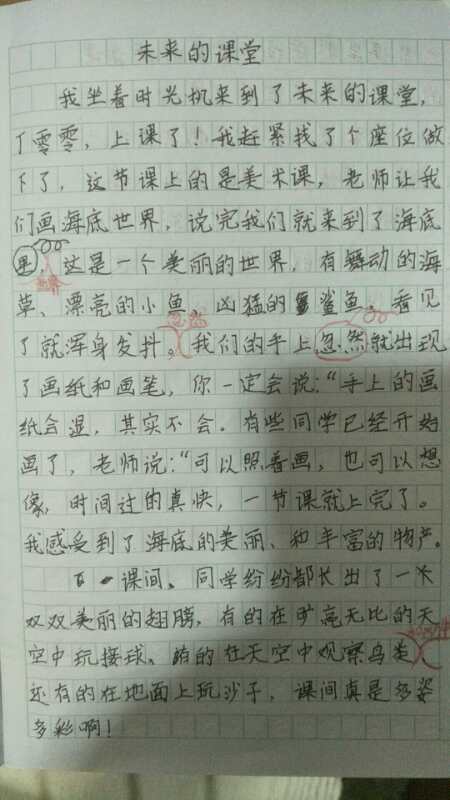 未来的课堂
我坐着时光机来到了未来的课堂,
丁零零,上课了!我赶紧找了个座位做
下了,这节课上的是美术课,老师让我
们画海底世界,说完我们就来到了海底
里,这是一个美丽的世界,有舞动的海
草、漂亮的小鱼、凶猛的鲨鱼,看见
了就浑身发抖。我们的手上忽然就出现
了画纸和画笔,你一定会说:“手上的画
纸会湿,其实不会。有些同学已经开始
画了,老师说:“可以照着画,也可以想
像,时间过的真快,一节课就上完了。
我感受到了海底的美丽、和丰富的物产。
课间,同学纷纷都长出了一
双双美丽的翅膀,有的在旷高无比的天
空中玩接球、有的在天空中观察鸟类
还有的在地面上玩沙子,课间真是多姿
多彩啊!